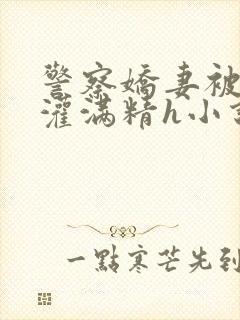 警察嬌妻被
灌滿精h小
一點寒芒先到